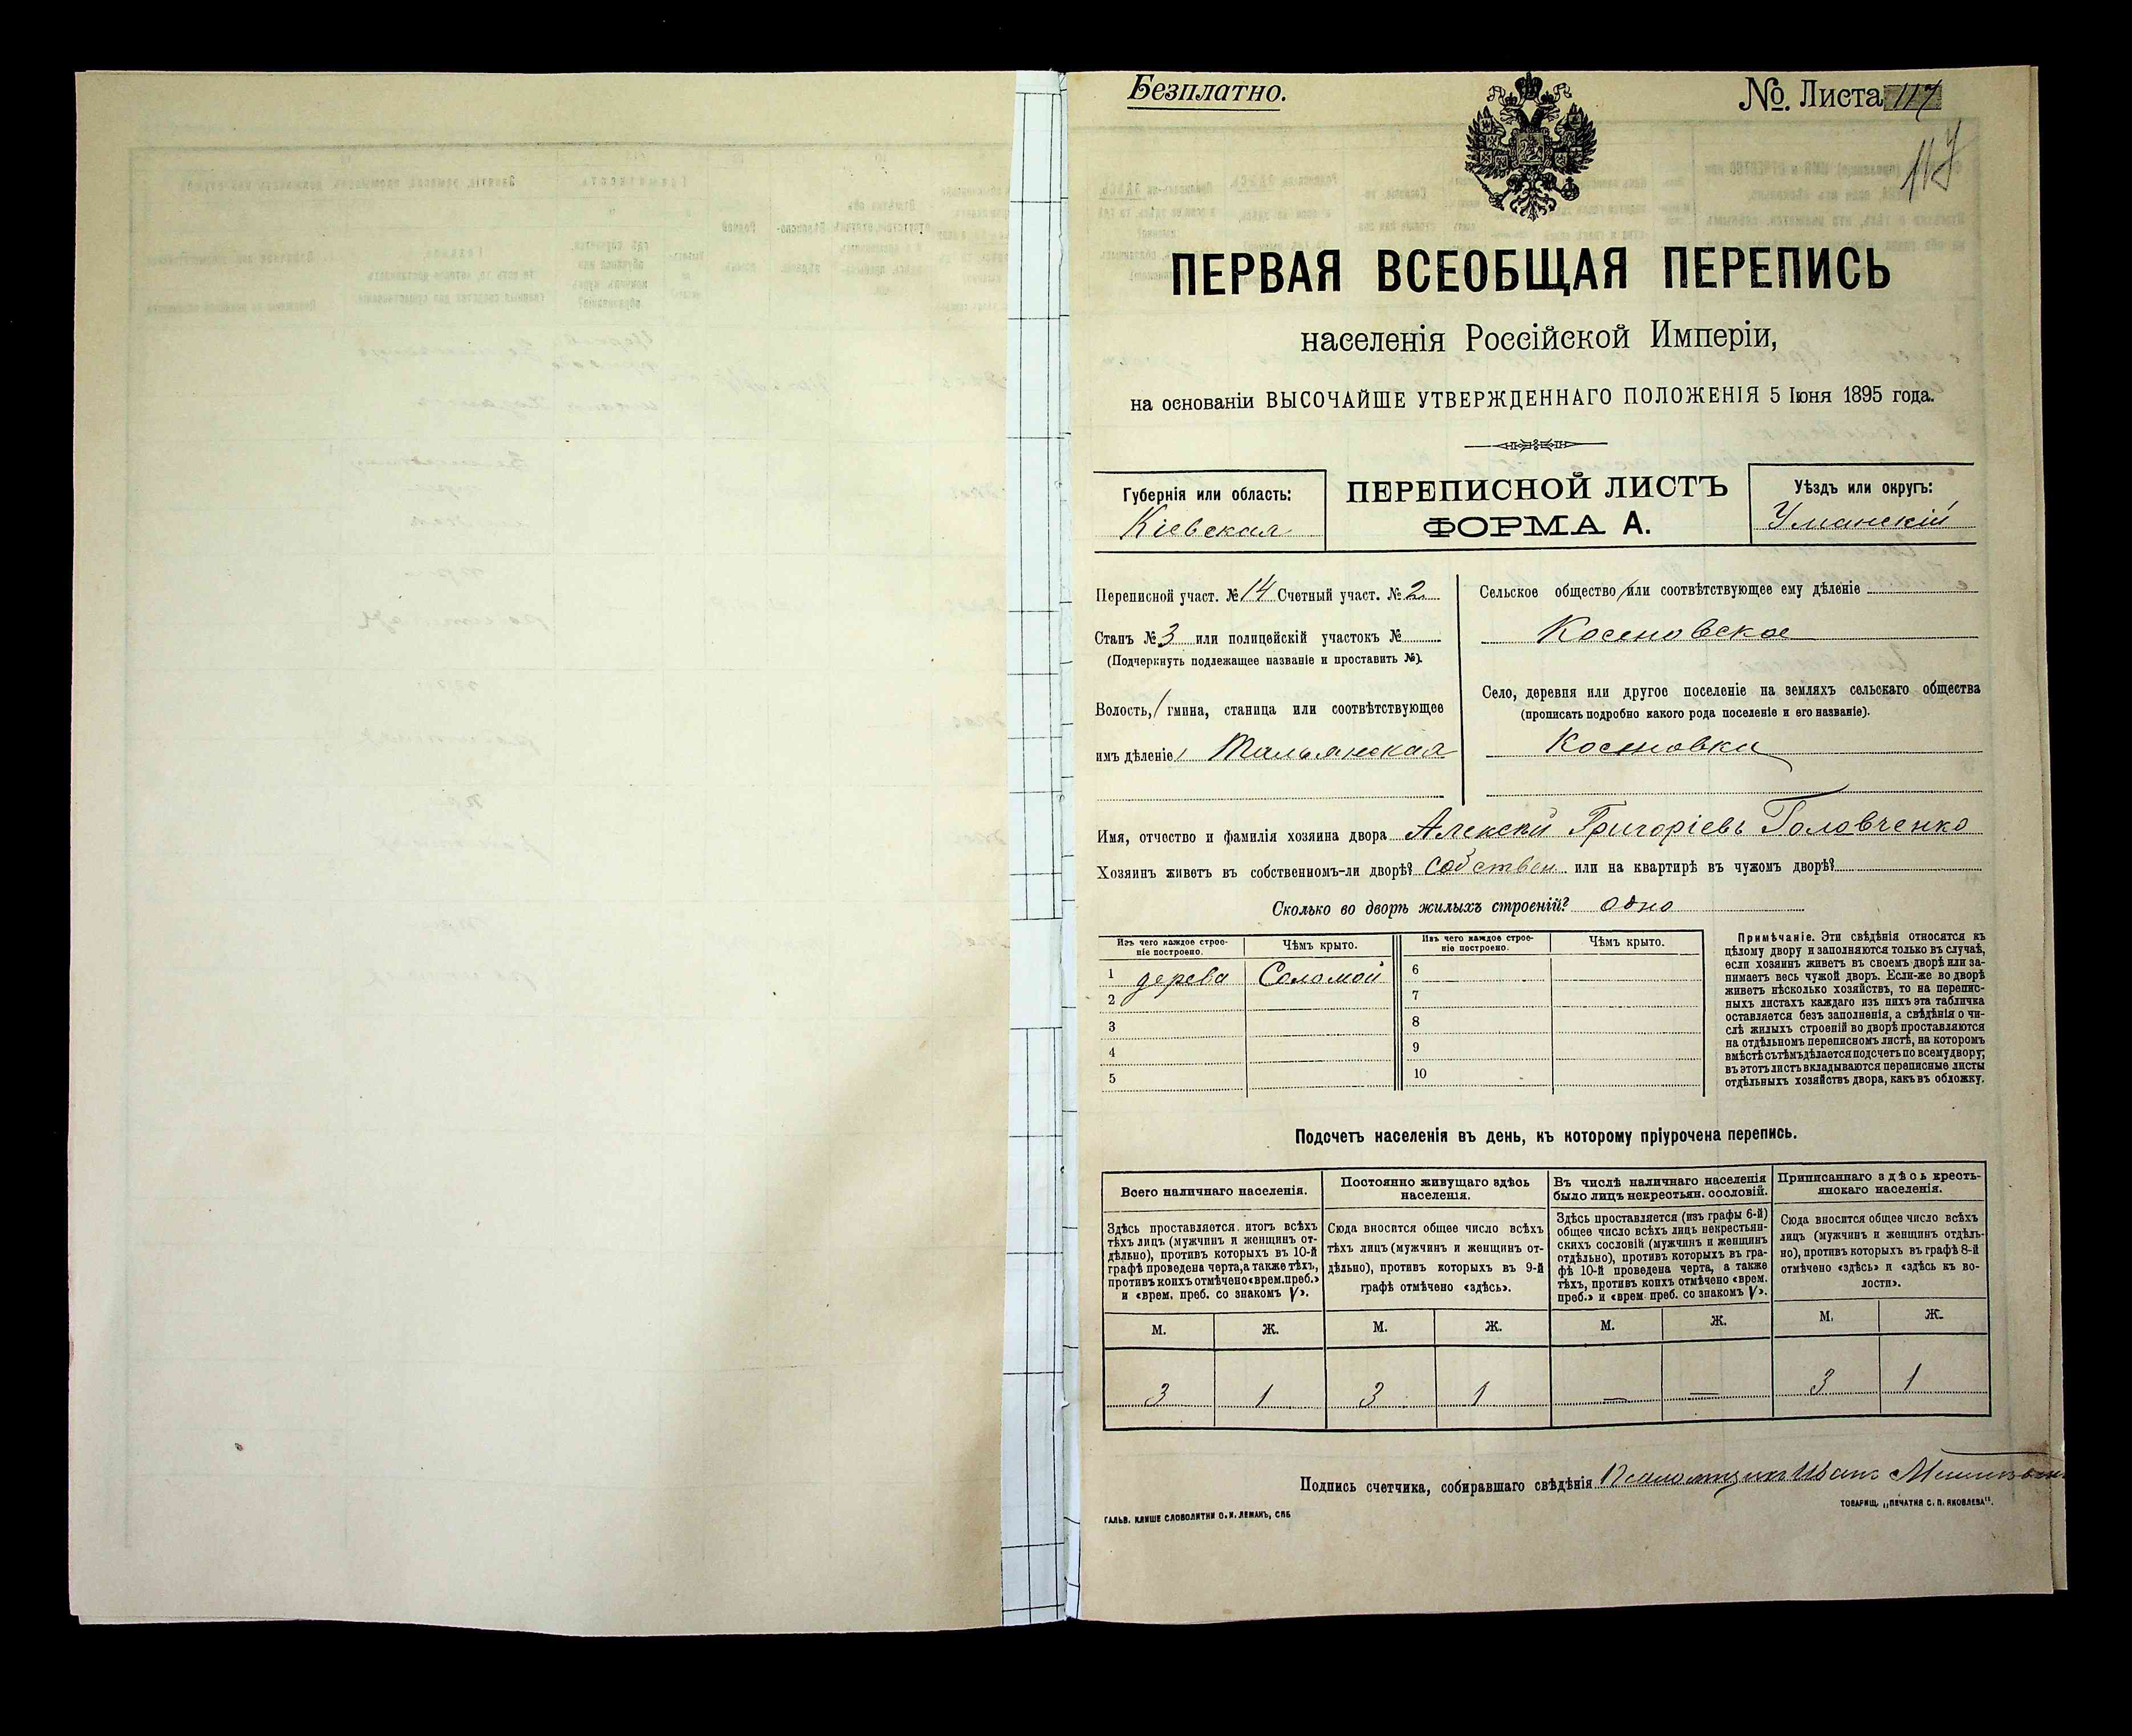 Безплатно.
№. Листа 117
117
ПЕРВАЯ ВСЕОБЩАЯ ПЕРЕПИСЬ
населенія Россійской Имперіи,
на основаніи ВЫСОЧАЙШЕ УТВЕРЖДЕННАГО ПОЛОЖЕНІЯ 5 Іюня 1895 года.
Губернія или область:
Кіевская
ПЕРЕПИСНОЙ ЛИСТЪ
ФОРМА А.
Уѣздъ или округъ:
Уманскій
Переписной участ. № 14 Счетный участ. № 2
Станъ № 3 или полицейскій участокъ №
(Подчеркнуть подлежащее названіе и проставить №).
Волость, гмина, станица или соотвѣтствующее
имъ дѣленіе Тальянская
Сельское общество или соотвѣтствующее ему дѣленіе
Косеновское
Село, деревня или другое поселеніе на земляхъ сельскаго общества
(прописать подробно какого рода поселеніе и его названіе).
Косеновка
Имя, отчество и фамилія хозяина двора Алексій Григоріевъ Головченко
Хозяинъ живетъ въ собственномъ-ли дворѣ? Собствен или на квартирѣ въ чужомъ дворѣ?
Сколько во дворѣ жилыхъ строеній? одно
Изъ чего каждое строе-
ніе построено.
Чѣмъ крыто.
Изъ чего каждое строе-
ніе построено.
Чѣмъ крыто.
1 дерева Соломой 6
2 7
3 8
4 9
5 10
Примѣчаніе. Эти свѣдѣнія относятся къ
цѣлому двору и заполняются только въ случаѣ,
если хозяинъ живетъ въ своемъ дворѣ или за-
нимаетъ весь чужой дворъ. Если-же во дворѣ
живетъ нѣсколько хозяйствъ, то на перепис-
ныхъ листахъ каждаго изъ нихъ эта табличка
оставляется безъ заполненія, а свѣдѣнія о чи-
слѣ жилыхъ строеній во дворѣ проставляются
на отдѣльномъ переписномъ листѣ, на которомъ
вмѣстѣ съ тѣмъ дѣлается подсчетъ по всему двору;
въ этотъ листъ вкладываются переписные листы
отдѣльныхъ хозяйствъ двора, какъ въ обложку.
Подсчетъ населенія въ день, къ которому пріурочена перепись.
Всего наличнаго населенія.
Здѣсь проставляется итогъ всѣхъ
тѣхъ лицъ (мужчинъ и женщинъ от-
дѣльно), противъ которыхъ въ 10-й
графѣ проведена черта, а также тѣхъ,
противъ коихъ отмѣчено «врем. преб.»
и «врем. преб. со знакомъ V».
Постоянно живущаго здѣсь
населенія.
Сюда вносится общее число всѣхъ
тѣхъ лицъ (мужчинъ и женщинъ от-
дѣльно), противъ которыхъ въ 9-й
графѣ отмѣчено «здѣсь».
Въ числѣ наличнаго населенія
было лицъ некрестьян. сословій.
Здѣсь проставляется (изъ графы 6-й)
общее число всѣхъ лицъ некрестьян-
скихъ сословій (мужчинъ и женщинъ
отдѣльно), противъ которыхъ въ гра-
фѣ 10-й проведена черта, а также
тѣхъ, противъ коихъ отмѣчено «врем.
преб.» и «врем. преб. со знакомъ V».
Приписаннаго здѣсь кресть-
янскаго населенія.
Сюда вносится общее число всѣхъ
лицъ (мужчинъ и женщинъ отдѣль-
но), противъ которыхъ въ графѣ 8-й
отмѣчено «здѣсь» и «здѣсь къ во-
лости».
М. Ж. М. Ж. М. Ж. М. Ж.
3 1 3 1 — — 3 1
Подпись счетчика, собиравшаго свѣдѣнія Псаломщикъ Иванъ
ГАЛЬВ. КЛИШЕ СЛОВОЛИТНИ О. И. ЛЕМАНЪ, СПБ
ТОВАРИЩ. „ПЕЧАТНЯ С. П. ЯКОВЛЕВА".